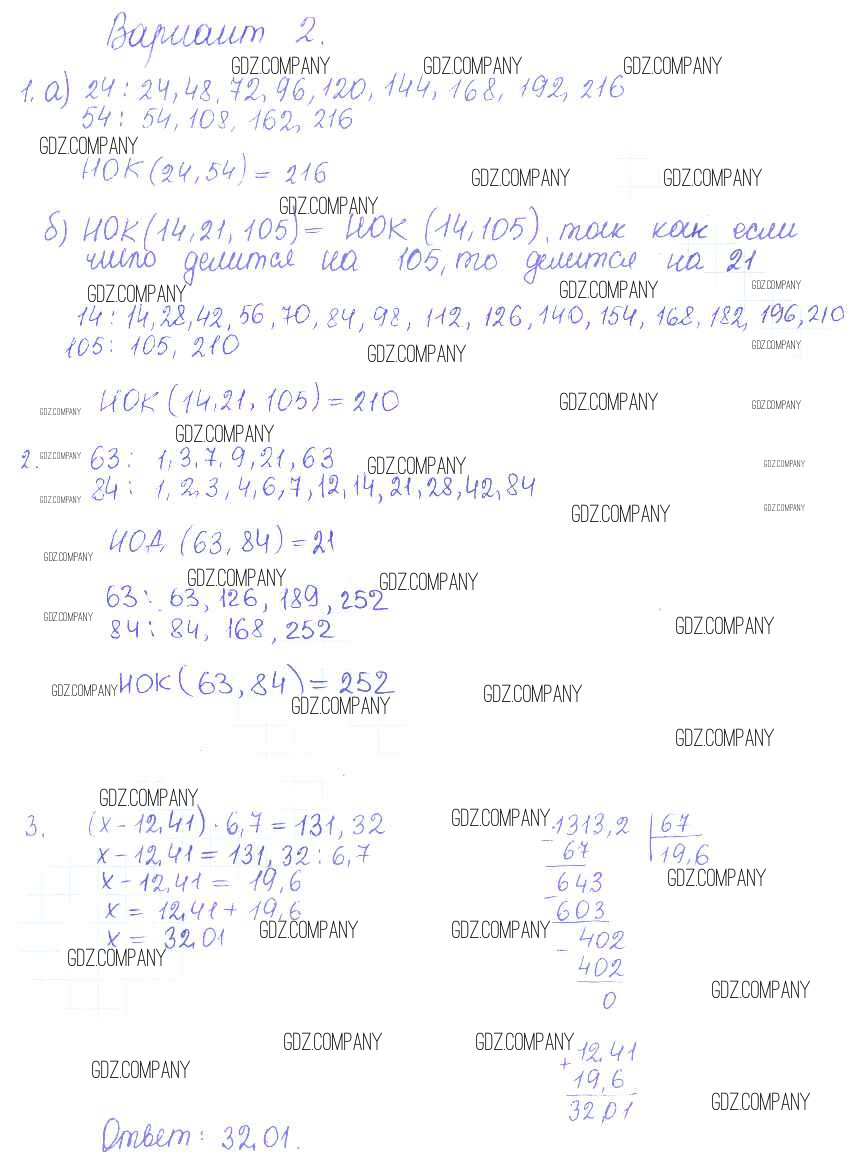 Вариант 2.
GDZ.COMPANY GDZ.COMPANY GDZ.COMPANY
1. а) 24: 24, 48, 72, 96, 120, 144, 168, 192, 216
54: 54, 108, 162, 216
GDZ.COMPANY
НОК (24, 54) = 216
GDZ.COMPANY GDZ.COMPANY
GDZ.COMPANY
б) НОК (14, 21, 105) = НОК (14, 105), так как если
число делится на 105, то делится на 21
GDZ.COMPANY GDZ.COMPANY GDZ.COMPANY
14: 14, 28, 42, 56, 70, 84, 98, 112, 126, 140, 154, 168, 182, 196, 210
105: 105, 210
GDZ.COMPANY GDZ.COMPANY
НОК (14, 21, 105) = 210
GDZ.COMPANY GDZ.COMPANY GDZ.COMPANY
GDZ.COMPANY
2. GDZ.COMPANY 63: 1, 3, 7, 9, 21, 63
GDZ.COMPANY GDZ.COMPANY
84: 1, 2, 3, 4, 6, 7, 12, 14, 21, 28, 42, 84
GDZ.COMPANY GDZ.COMPANY GDZ.COMPANY
НОД (63, 84) = 21
GDZ.COMPANY
GDZ.COMPANY GDZ.COMPANY
63: 63, 126, 189, 252
GDZ.COMPANY GDZ.COMPANY
84: 84, 168, 252
GDZ.COMPANY НОК (63, 84) = 252
GDZ.COMPANY GDZ.COMPANY
GDZ.COMPANY
GDZ.COMPANY
3. (x - 12,41) · 6,7 = 131,32
x - 12,41 = 131,32 : 6,7
x - 12,41 = 19,6
x = 12,41 + 19,6
x = 32,01
GDZ.COMPANY GDZ.COMPANY
GDZ.COMPANY
GDZ.COMPANY
- 1313,2 | 67
67 | 19,6
GDZ.COMPANY
- 643
603
GDZ.COMPANY
- 402
402
0
GDZ.COMPANY
GDZ.COMPANY GDZ.COMPANY
GDZ.COMPANY
+ 12,41
19,6
32,01
GDZ.COMPANY
Ответ: 32,01.